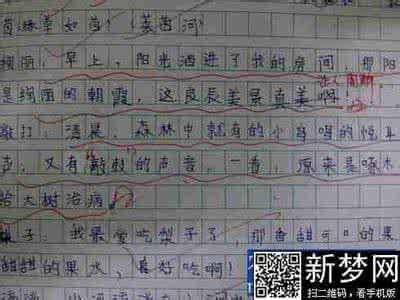 茵绿草如茵!(莱茵河)
绚丽:早上,阳光洒进了我的房间,那阳
是绚丽的朝霞,这良辰美景真美啊!
敲打:清晨,森林中就有的小鸟唱的悦耳
声,又有"敲鼓"的声音,一看,原来是啄木
给大树治病
梨子:我最爱吃梨子了,那香甜可口的果
甜甜的果水,真好吃啊!
新梦网
扫二维码,看手机版